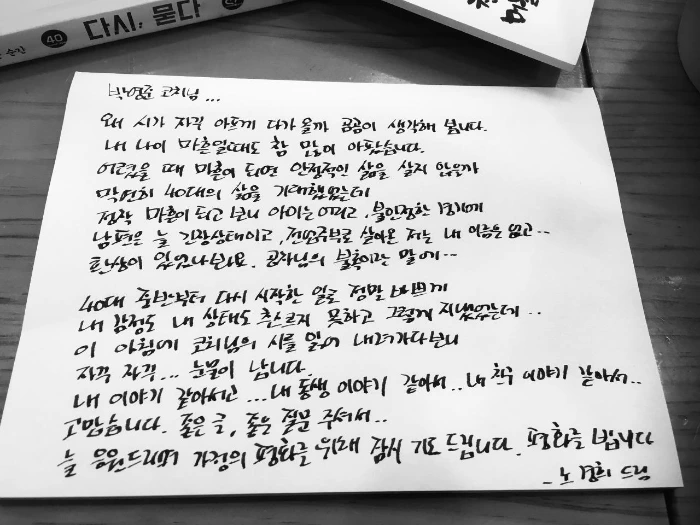 순간
40
다시, 묻다
박영준 코치님...
왜 시가 자꾸 아프게 다가올까 곰곰이 생각해 봅니다.
내 나이 마흔일때도 참 많이 아팠습니다.
어렸을 때 마흔이 되면 안정적인 삶을 살지 않을까
막연히 40대의 삶을 기대했었는데
정작 마흔이 되고 보니 아이는 어리고, 불안정한
남편은 늘 긴장상태이고, 전업주부로 살아온 저는 내 이름을 잃고..
환상이 있었나봐요. 공자님의 불혹이라는 말에..
40대 중반부터 다시 시작한 일로 정말 바쁘게
내 감정도 내 상태도 추스르지 못하고 그렇게 지냈었는데..
이 아침에 코치님의 시를 읽어 내려가다보니
자꾸 자꾸... 눈물이 납니다.
내 이야기 같아서고...내 동생 이야기 같아서..내 친구 이야기 같아서..
고맙습니다. 좋은 글, 좋은 질문 주셔서..
늘 응원드리며 가정의 평화를 위해 잠시 기도 드립니다. 평화를 빕니다
- 노경희 드림